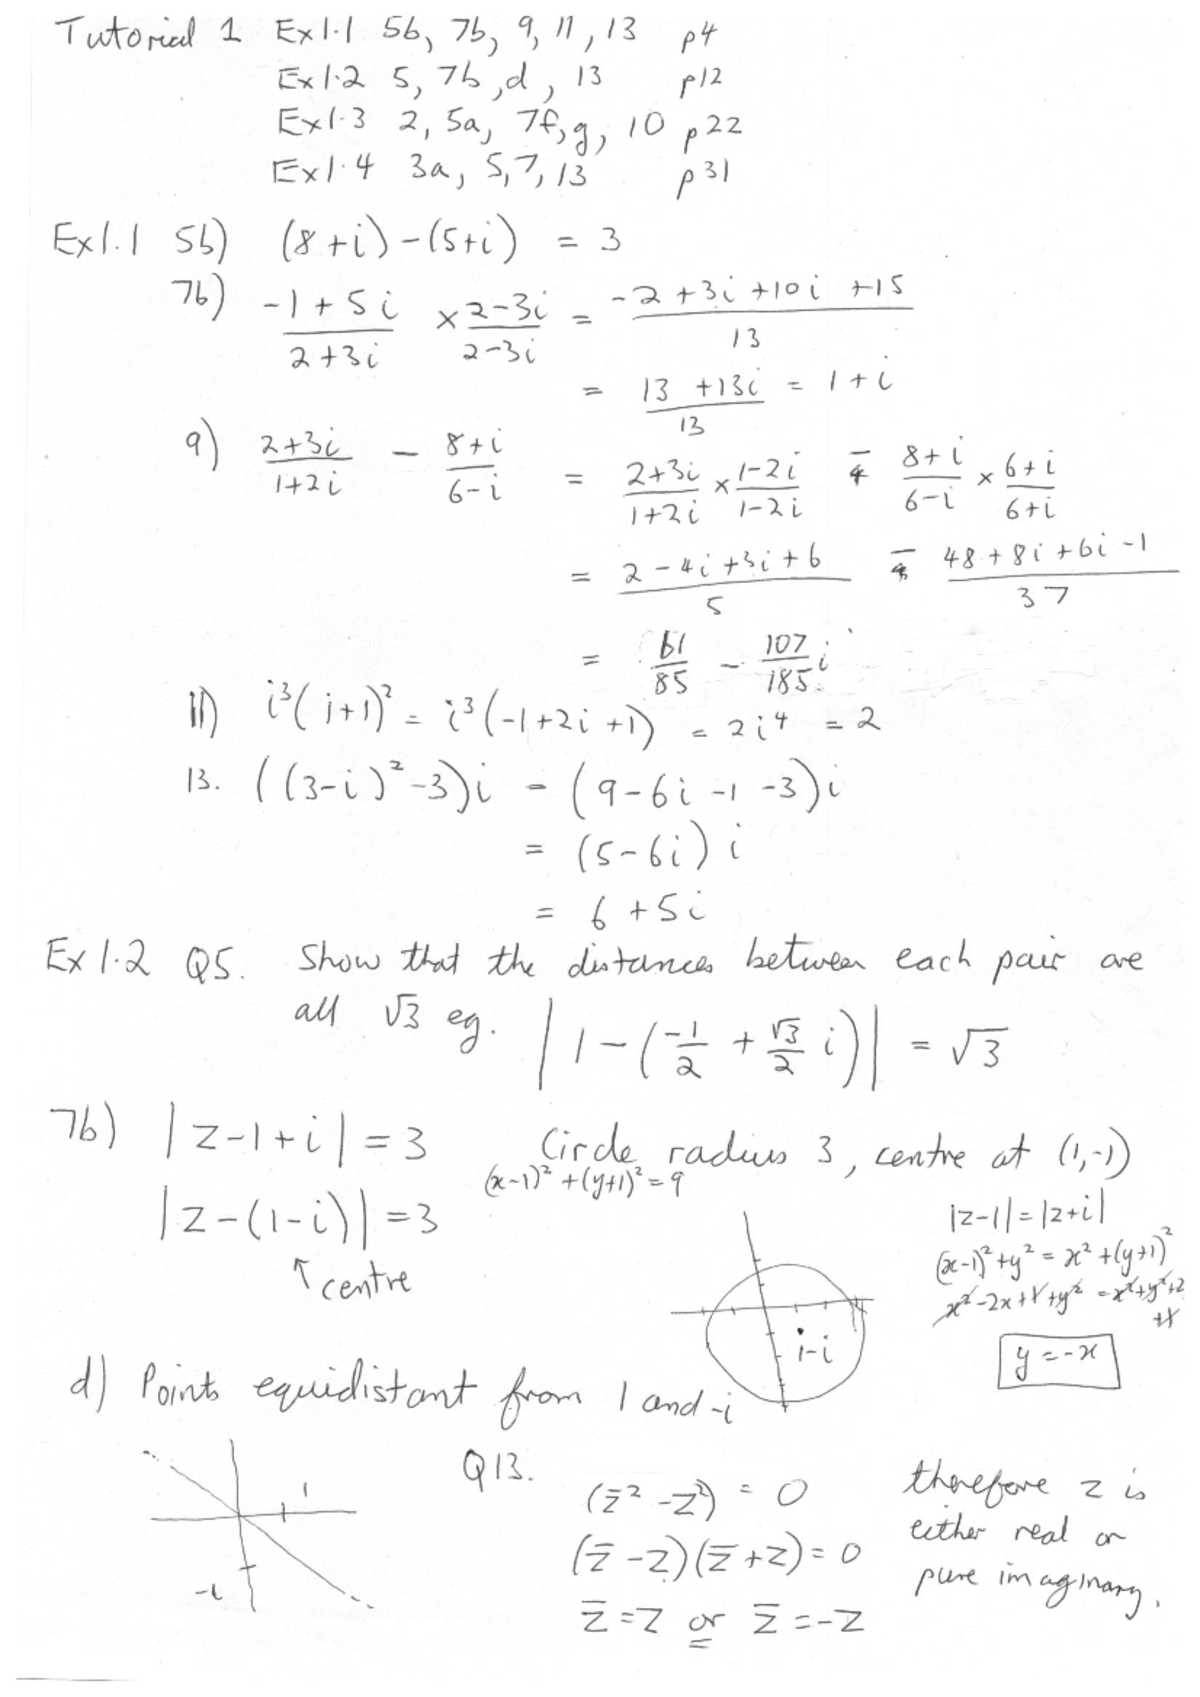 Tutorial 1 Ex1.1 5b, 7b, 9, 11, 13 p4
Ex1.2 5, 7b, d, 13 p12
Ex1.3 2, 5a, 7f, g, 10 p22
Ex1.4 3a, 5, 7, 13 p31
Ex1.1 5b) (8+i)-(5+i) = 3
7b) (-1+5i)/(2+3i) × (2-3i)/(2-3i) = (-2+3i+10i+15)/13
= (13+13i)/13 = 1+i
9) (2+3i)/(1+2i) - (8+i)/(6-i) = (2+3i)/(1+2i) × (1-2i)/(1-2i) - (8+i)/(6-i) × (6+i)/(6+i)
= (2-4i+3i+6)/5 - (48+8i+6i-1)/37
= 61/85 - 107/185 i
11) i³(i+1)² = i³(-1+2i+1) = 2i⁴ = 2
13. ((3-i)²-3)i = (9-6i-1-3)i
= (5-6i)i
= 6+5i
Ex1.2 Q5. Show that the distances between each pair are
all √3 eg. |1-(-1/2 + √3/2 i)| = √3
7b) |z-1+i| = 3 Circle radius 3, centre at (1,-1)
(x-1)²+(y+1)²=9
|z-(1-i)| = 3
↑ centre
1-i
|z-1| = |z+i|
(x-1)²+y² = x²+(y+1)²
x²-2x+1+y² = x²+y²+2
+1
y=-x
d) Points equidistant from 1 and -i
1
-i
Q13. (z̄²-z²) = 0
(z̄-z)(z̄+z) = 0
z̄=z or z̄=-z
therefore z is
either real or
pure imaginary.